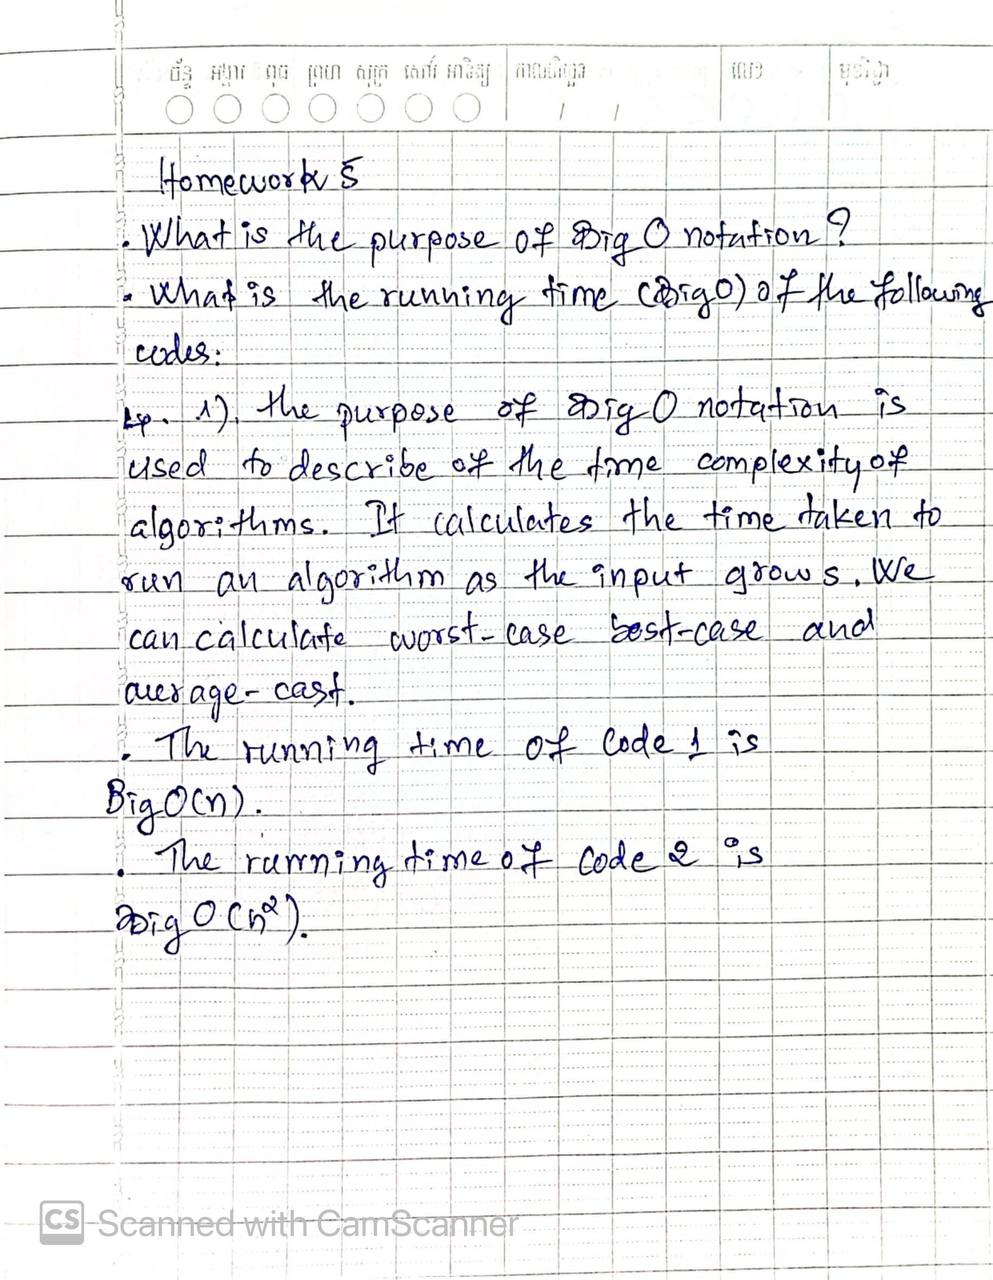 ច័ន្ទ អង្គារ ពុធ ព្រហ សុក្រ សៅរ៍ អាទិត្យ កាលបរិច្ឆេទ លេខ មុខវិជ្ជា
/ /
Homework 5
. What is the purpose of Big O notation ?
. What is the running time (Big O) of the following
codes:
1). the purpose of Big O notation is
used to describe of the time complexity of
algorithms. It calculates the time taken to
run an algorithm as the input grows. We
can calculate worst-case best-case and
average-cast.
. The running time of Code 1 is
Big O(n).
. The running time of code 2 is
Big O (n²).
CS Scanned with CamScanner